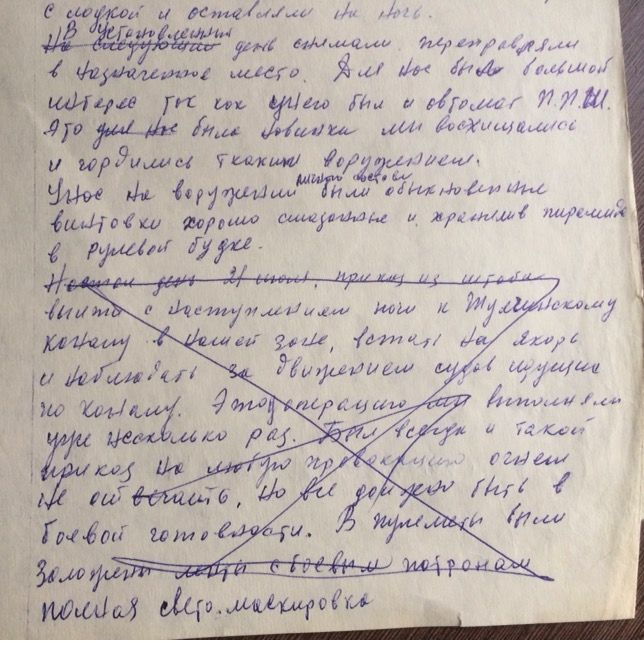 с лодкой и оставляли на ночь.
В установленный
На следующий день снимали переправляли
в назначенное место. Для нас было большой
интерес так как у него был и автомат П.П.Ш.
Это для нас была новинка мы восхищались
и гордились таким воружением.
личного состава
У нас на воружении были обыкновенные
винтовки хорошо смазанные и хранились пирамиде
в рулевой будке.
Настал день 21 июня, приказ из штаба
выйти с наступлением ночи к Тулчинскому
каналу в нашей зоне, встать на якорь
и наблюдать за движением судов идущие
по каналу. Эту операцию мы выполняли
уже несколько раз. Был всегда и такой
приказ на любую провокацию огнем
не отвечать, но все должно быть в
боевой готовности. В пулеметы были
заложены ленты с боевым патронам
полная свето.маскировка